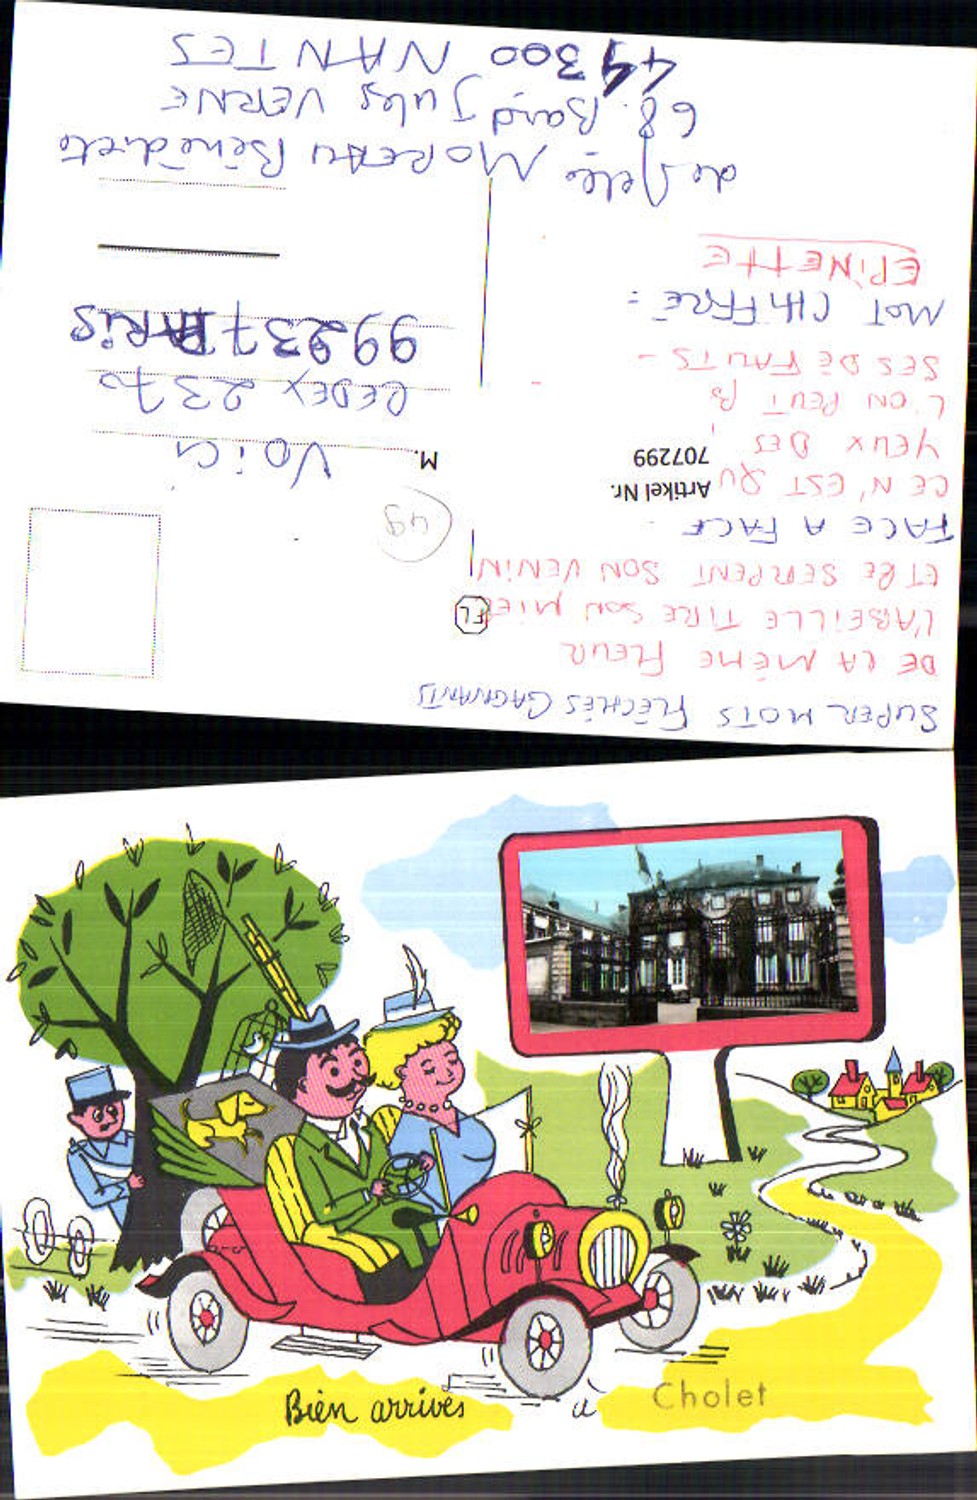 SUPER MOTS FLÉCHÉS GAGNANTS
DE LA MÊME FLEUR
L'ABEILLE TIRE SON MIEL
ET LE SERPENT SON VENIN
FACE A FACE
CE N'EST QU
YEUX DES
L'ON PEUT
SES DEFAUTS -
MOT CHIFFRE =
EPINETTE
FL
Artikel Nr.
707299
49
M. VOICI
CEDEX 2370
99237 PARIS
de Melle MOREAU Bénédicte
68 Bard Jules VERNE
44300 NANTES
Bien arrivés à Cholet